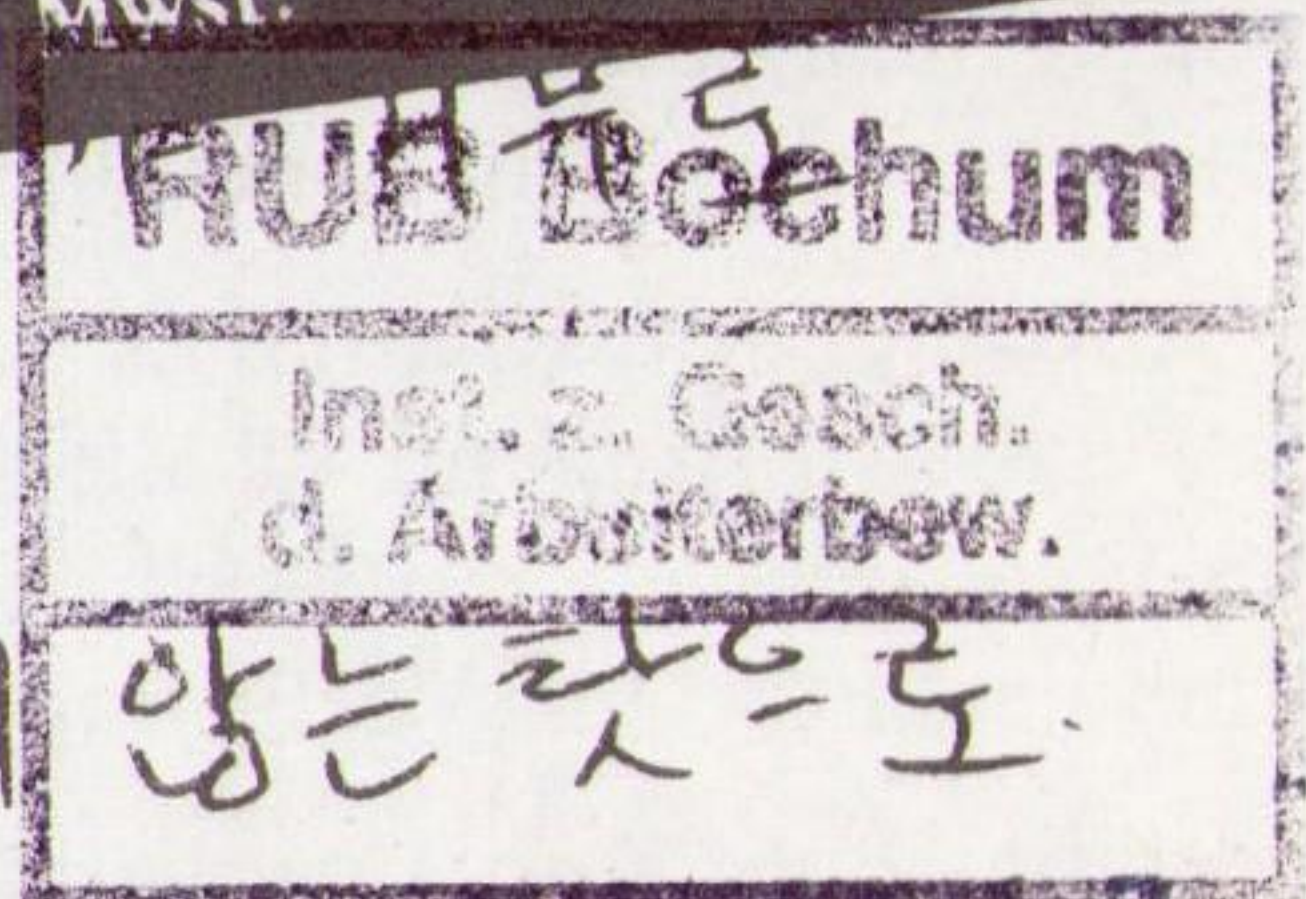 MwSt.
RUB Bochum
Inst. z. Gesch.
d. Arbeiterbew.
않는 탓으로.